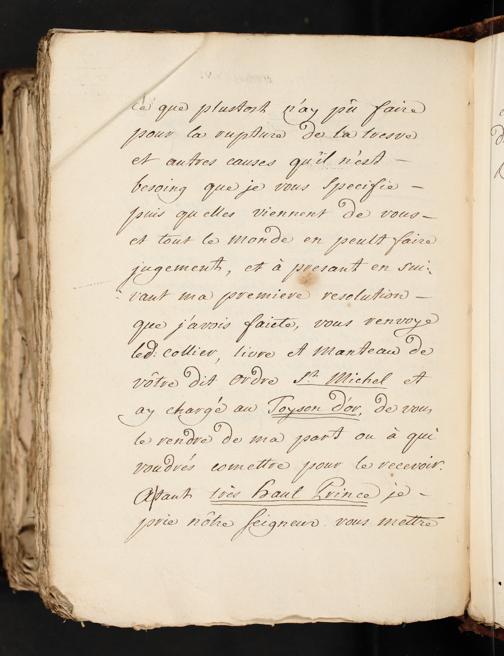 ce que plustost n'ay pû faire
pour la rupture de la tresve
et autres causes qu'il n'est –
besoing que je vous specifie –
puis qu'elles viennent de vous –
et tout le monde en peult faire
jugement, et à presant en sui-
vant ma premiere resolution –
que j'avois faicte, vous renvoye
led: collier, livre et manteau de
vôtre dit ordre St. Michel et
ay chargé au Toyson d'or, de vous
le rendre de ma part ou à qui
voudrés comettre pour le recevoir.
Atant très haut Prince je –
prie nôtre seigneur vous mettre